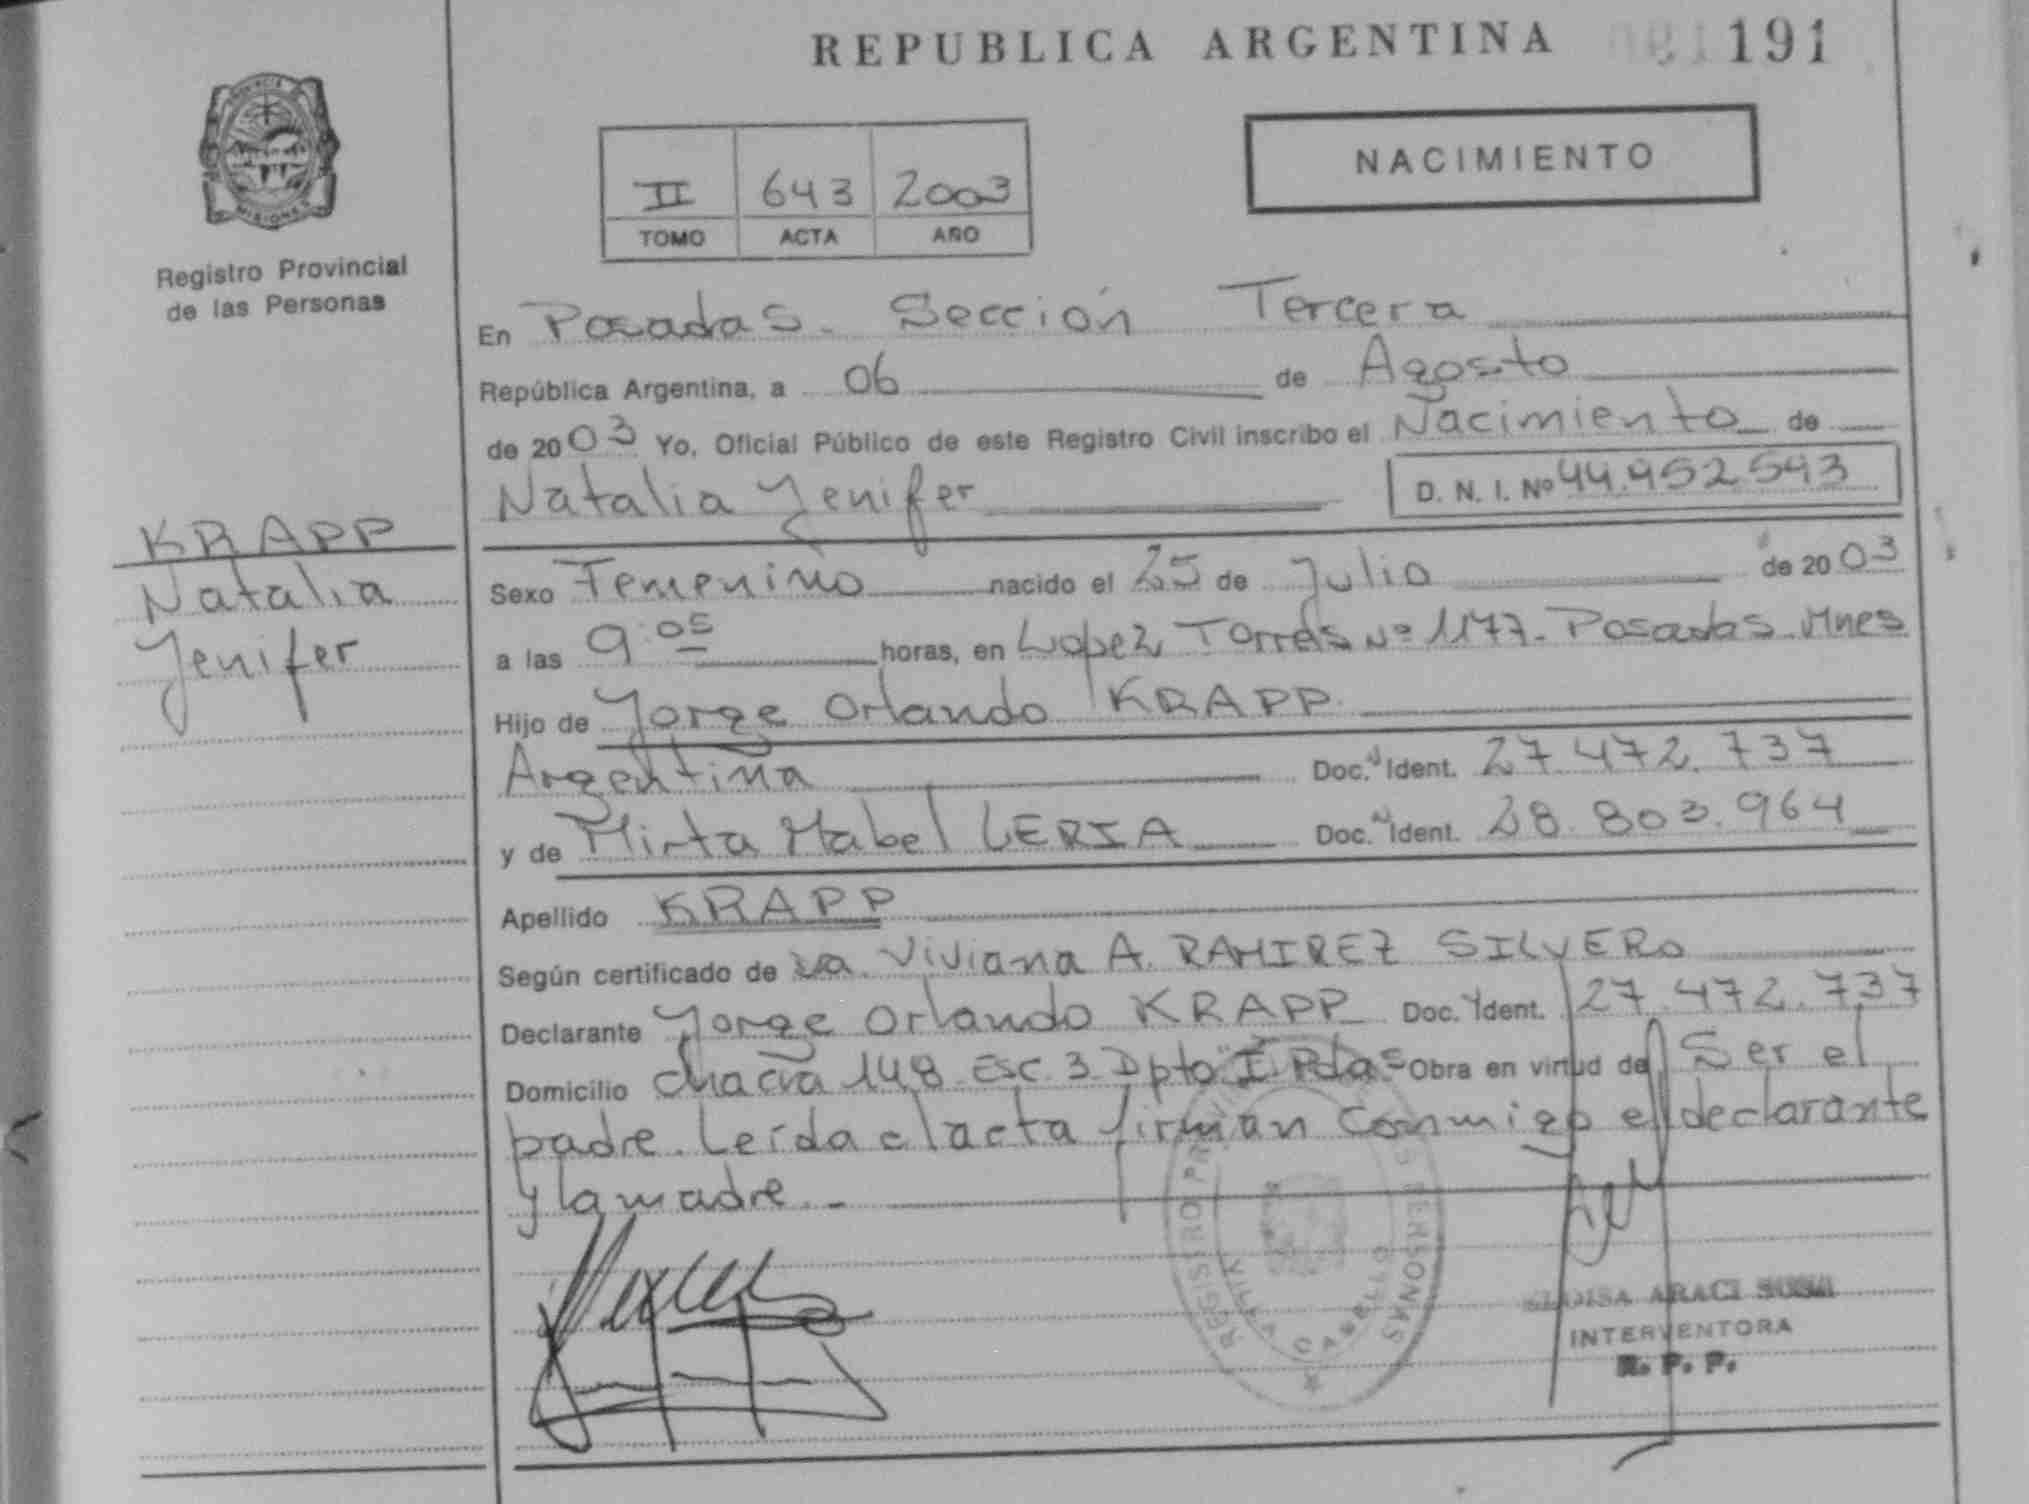 REPUBLICA ARGENTINA 191
PROVINCIA
MISIONES
Registro Provincial
de las Personas
NACIMIENTO
II 643 2003
TOMO ACTA AÑO
En Posadas. Sección Tercera
República Argentina, a 06 de Agosto
de 2003 Yo, Oficial Público de este Registro Civil inscribo el Nacimiento de
Natalia Yenifer D. N. I. Nº 44.952.593
KRAPP
Natalia
Yenifer
Sexo Femenino nacido el 25 de Julio de 2003
a las 9:05 horas, en Lopez Torres Nº 1177. Posadas. Mnes
Hijo de Jorge Orlando KRAPP
Argentina Doc. Ident. 27.472.737
y de Mirta Mabel LERIA Doc. Ident. 28.803.964
Apellido KRAPP
Según certificado de Viviana A. RAMIREZ SILVERO
Declarante Jorge Orlando KRAPP Doc. Ident. 27.472.737
Domicilio chacra 148 Esc. 3 Dpto "I" Pdas Obra en virtud de Ser el
padre. Leída el acta firman conmigo el declarante
y la madre. -
REGISTRO PERSONAS
ARACI
INTERVENTORA
R. P. P.